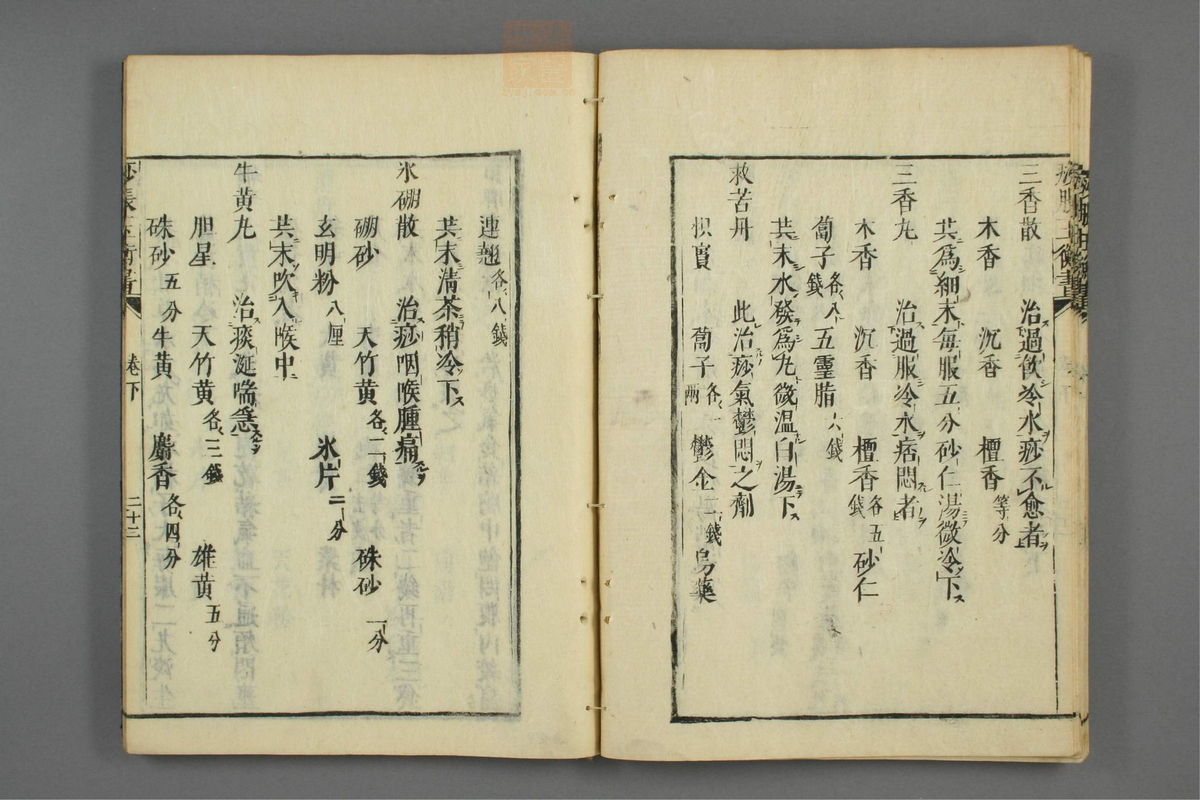 三香散 治過飲冷水痧不愈者
木香 沉香 檀香等分
共爲細末每服五分砂仁湯微冷下
三香丸 治過服冷水痞悶者
木香 沉香 檀香各五錢 砂仁
蔔子各八錢 五靈脂六錢
共末水發爲丸微温白湯下
救苦丹 此治痧氣鬱悶之劑
枳實 蔔子各一兩 鬱金二錢 烏藥
連翹各八錢
共末清茶稍冷下
氷硼散 治痧咽喉腫痛
硼砂 天竹黄各二錢 硃砂一分
玄明粉八厘 氷片二分
共末吹入喉中
牛黄丸 治痰涎喘急
胆星 天竹黄各三錢 雄黄五分
硃砂五分 牛黄 麝香各四分
卷下 二十二